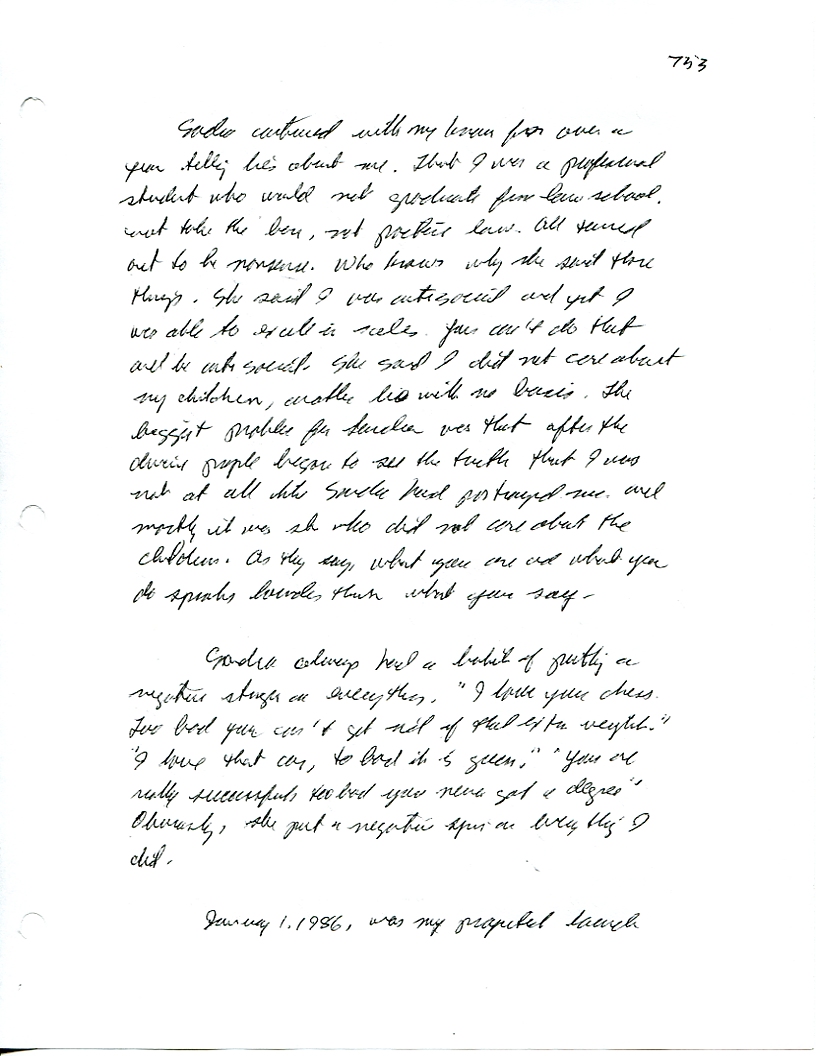 753
Sandra continued with my known for over a
year telling lies about me. That I was a professional
student who would not graduate from law school.
not take the bar, not practice law. All turned
out to be nonsense. Who knows why she said those
things. She said I was antisocial and yet I
was able to excell in sales. You can't do that
and be anti social. She said I did not care about
my children, another lie with no basis. The
biggest problem for Sandra was that after the
divorce people began to see the truth that I was
not at all like Sandra had portrayed me. and
mostly it was she who did not care about the
children. As they say, what you are and what you
do speaks louder than what you say-
Sandra always had a habit of putting a
negative stinger on everything. "I love your dress.
Too bad you can't get rid of that extra weight."
"I love that car, to bad it is green." "You are
really successful, too bad you never got a degree"
Obviously, she put a negative spin on everything I
did.
January 1. 1986, was my projected launch